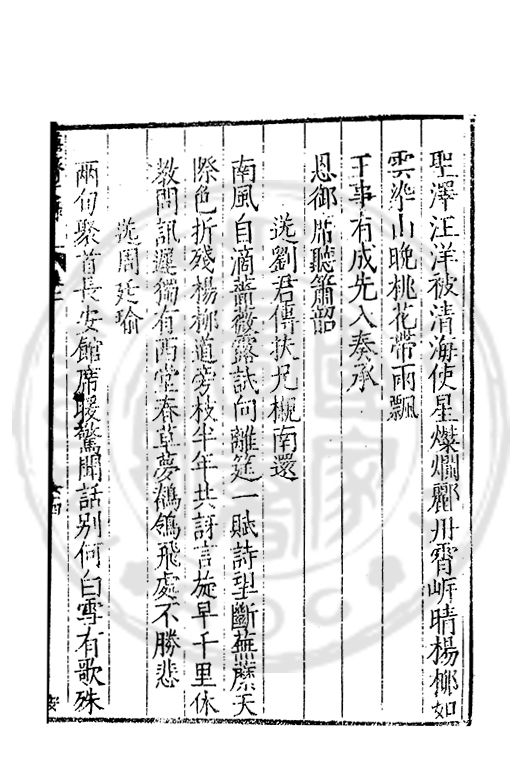 聖澤汪洋被清海使星燦爛麗丹霄岍晴楊柳如
雲涂山晚桃花帶雨飄
王事有成先入奏承
恩御席聽簫韶
送劉君傳扶兄櫬南還
南風自滴薔薇露試向離筵一賦詩望斷蕪蘼天
際色折殘楊柳道旁枝半年共訝言旋早千里休
教問訊遲獨有西堂春草夢鶺鴒飛處不勝悲
送周廷瑜
兩旬聚首長安館席暖驚聞話別何白雪有歌殊